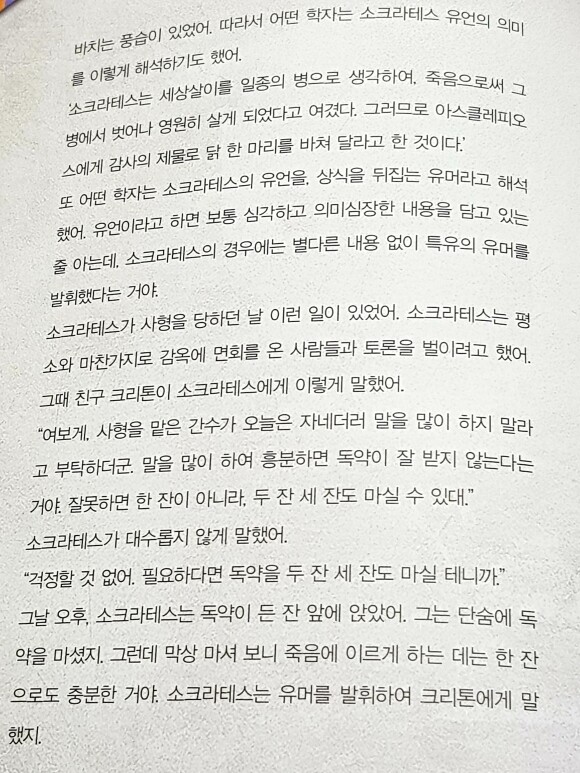 바치는 풍습이 있었어. 따라서 어떤 학자는 소크라테스 유언의 의미
를 이렇게 해석하기도 했어.
'소크라테스는 세상살이를 일종의 병으로 생각하여, 죽음으로써 그
병에서 벗어나 영원히 살게 되었다고 여겼다. 그러므로 아스클레피오
스에게 감사의 제물로 닭 한 마리를 바쳐 달라고 한 것이다.'
또 어떤 학자는 소크라테스의 유언을, 상식을 뒤집는 유머라고 해석
했어. 유언이라고 하면 보통 심각하고 의미심장한 내용을 담고 있는
줄 아는데, 소크라테스의 경우에는 별다른 내용 없이 특유의 유머를
발휘했다는 거야.
소크라테스가 사형을 당하던 날 이런 일이 있었어. 소크라테스는 평
소와 마찬가지로 감옥에 면회를 온 사람들과 토론을 벌이려고 했어.
그때 친구 크리톤이 소크라테스에게 이렇게 말했어.
"여보게, 사형을 맡은 간수가 오늘은 자네더러 말을 많이 하지 말라
고 부탁하더군. 말을 많이 하여 흥분하면 독약이 잘 받지 않는다는
거야. 잘못하면 한 잔이 아니라, 두 잔 세 잔도 마실 수 있대."
소크라테스가 대수롭지 않게 말했어.
"걱정할 것 없어. 필요하다면 독약을 두 잔 세 잔도 마실 테니까."
그날 오후, 소크라테스는 독약이 든 잔 앞에 앉았어. 그는 단숨에 독
약을 마셨지. 그런데 막상 마셔 보니 죽음에 이르게 하는 데는 한 잔
으로도 충분한 거야. 소크라테스는 유머를 발휘하여 크리톤에게 말
했지.